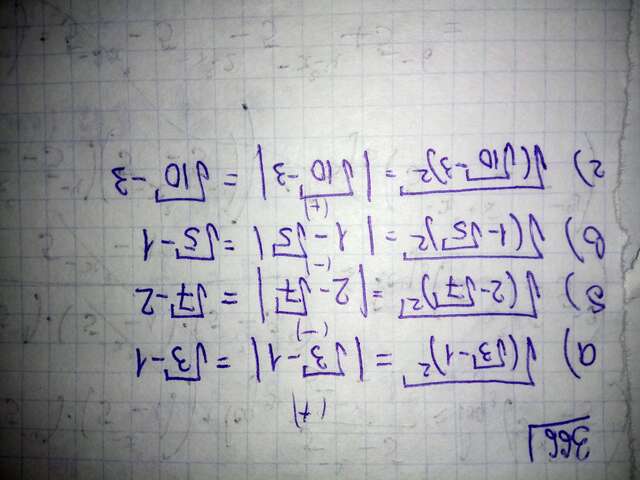 366
(+)
а) √(√3-1)² = |√3-1| = √3-1
(-)
б) √(2-√7)² = |2-√7| = √7-2
(-)
в) √(1-√5)² = |1-√5| = √5-1
(+)
г) √(√10-3)² = |√10-3| = √10-3